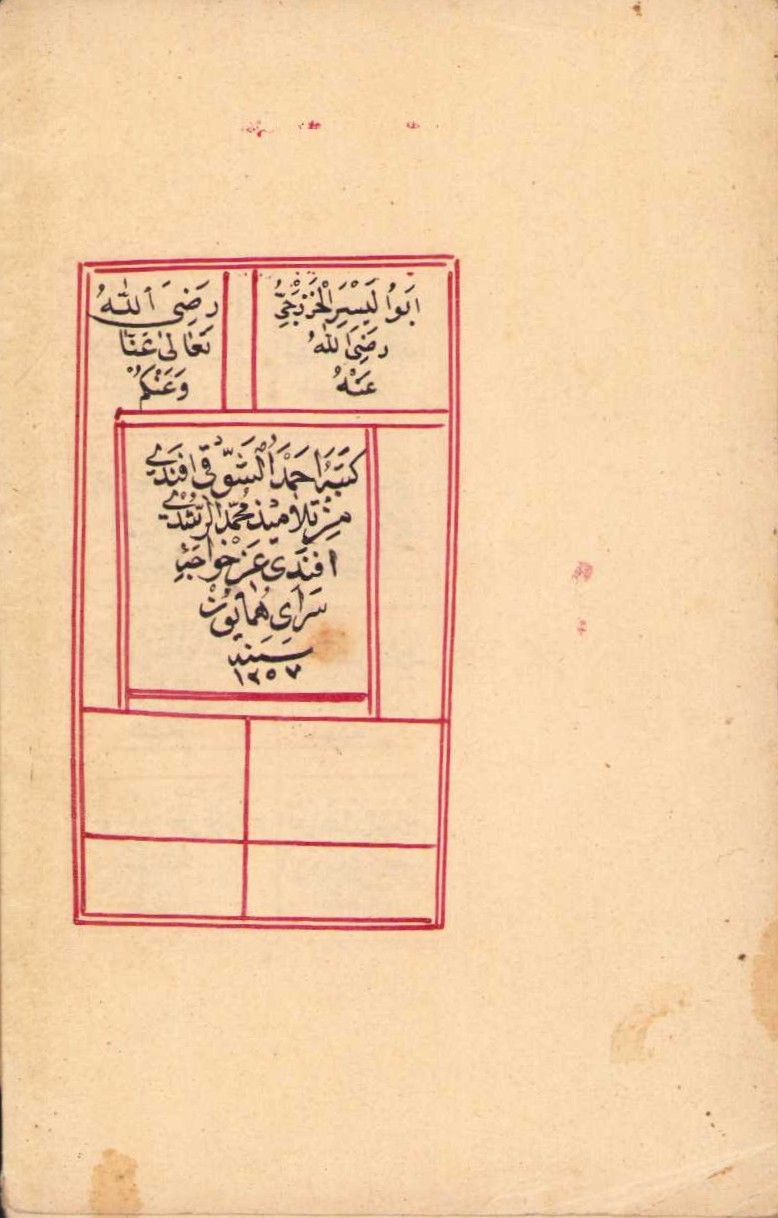 اَبُو الْيَسَرِ الْخَزْرَجِيُّ
رَضِيَ اللهُ
عَنْهُ
رَضِيَ اللّٰهُ
تَعَالٰى عَنَّا
وَعَنْكُمْ
كتبه احمد الشوقي افندي
من تلاميذ محمد الرشدي
افندي عن خواجه
سراى همايون
سنه
١٢٥٧